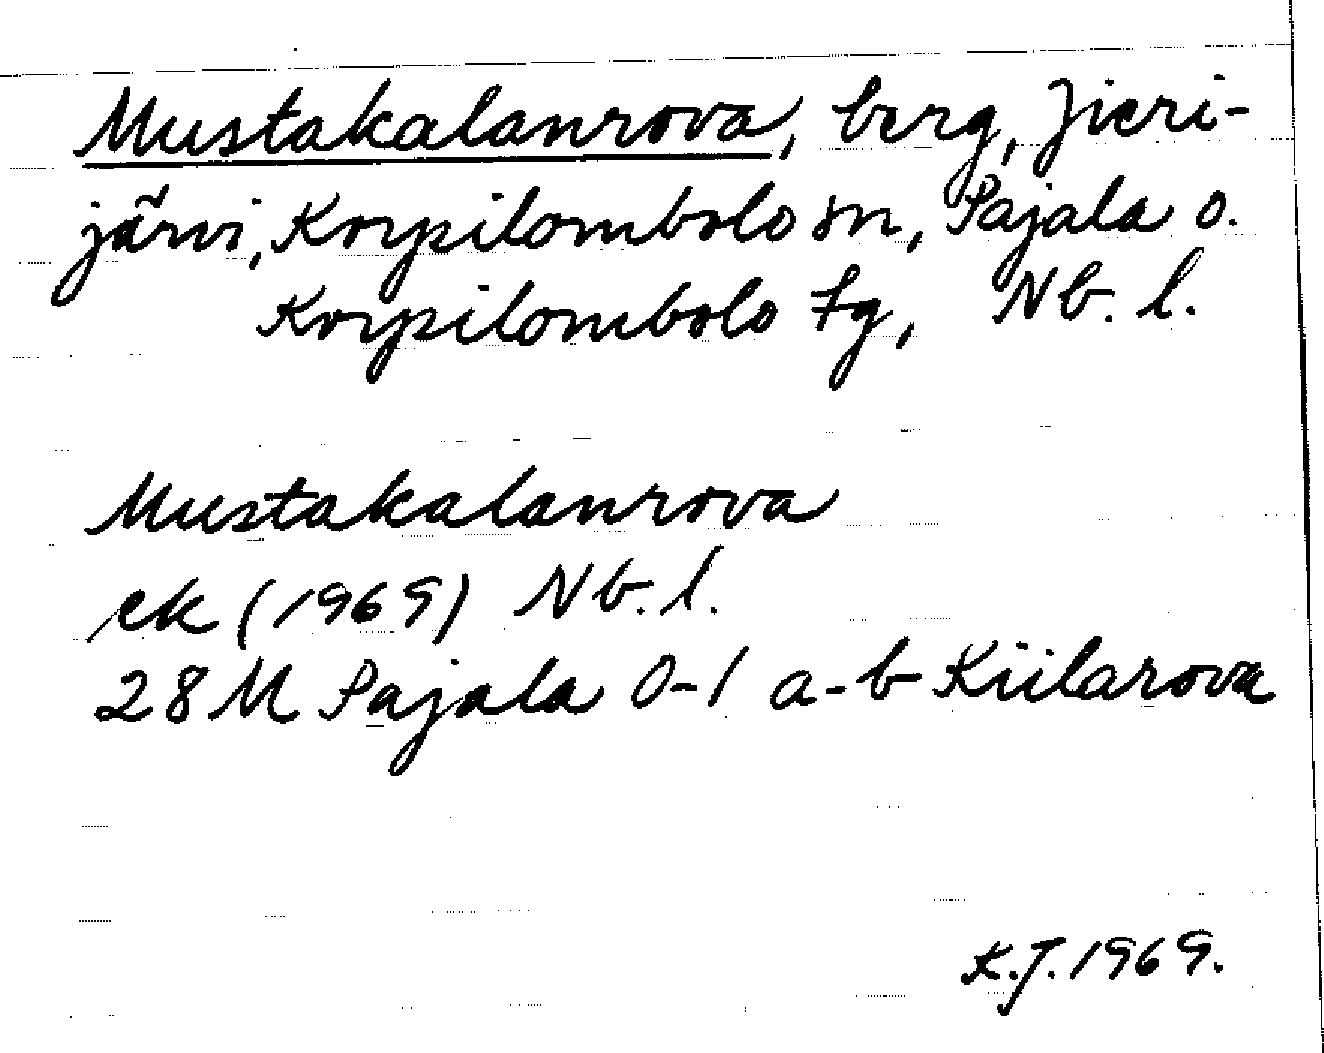 Mustakalanrova, berg, Jieri-
järvi, Korpilombolo sn, Pajala o.
Korpilombolo tg, Nb. l.
Mustakalanrova
ek (1969) Nb. l.
28 M Pajala 0-1 a-b Kiilarova
K.J. 1969.